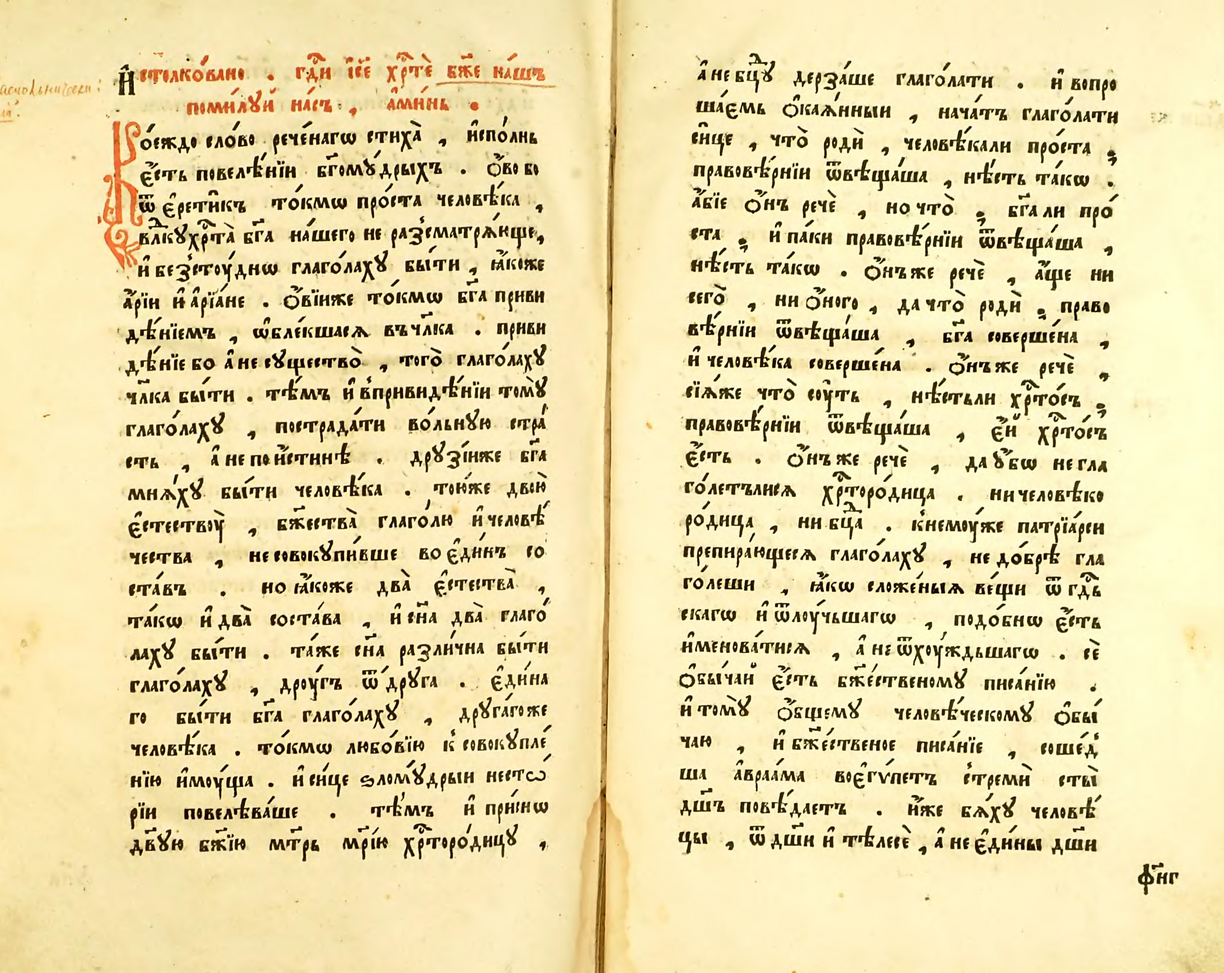 И҆столко́вано . гдⷭ҇и і҆се хрⷭ҇тѐ бж҃е на́шъ
поми́лꙋй на́съ , а҆ми́нь .
Ко́еждо сло́во рече́нагѡ стиха̀ , и҆спо́лнь
є҆́сть повелѣ́нїи бг҃омꙋ́дрыхъ . ѻ҆́во бо
ѿ є҆рети́къ то́кмѡ про́ста человѣ́ка ,
влⷣкꙋ хрⷭ҇та̀ бг҃а на́шего не разсматрѧ́юще ,
и҆ безстоу́днѡ глаго́лахꙋ бы́ти , ꙗ҆́коже
а҆́рїи и҆ а҆рїа́не . ѻ҆ві́иже то́кмѡ бг҃а приви
дѣ́нїемъ , ѡ҆бле́кшаесѧ въ чл҃ка . приви
дѣ́нїе бо а҆ не сꙋщество̀ , того̀ глаго́лахꙋ
чл҃ка бы́ти . тѣ́мъ и҆ в привидѣ́нїи томꙋ̀
глаго́лахꙋ , пострада́ти во́льнꙋю стра́
сть , а҆ не по и҆́стинѣ . дрꙋзі́иже бг҃а
мнѧ́хꙋ бы́ти человѣ́ка . тою́же двою̀
є҆стествоу̀ , бж҃ества̀ глаго́лю и҆ человѣ́
чества , не совокꙋпи́вше во є҆ди́нъ со
ста́въ . но ꙗ҆́коже два̀ є҆стества̀ ,
та́кѡ и҆ два̀ соста́ва , и҆ сн҃а два̀ глаго́
лахꙋ бы́ти . та́же сн҃а разли́чна бы́ти
глаго́лахꙋ , дроу́гъ ѿ дрꙋ́га . є҆ди́на
го бы́ти бг҃а глаго́лахꙋ , дрꙋга́гоже
человѣ́ка . то́кмѡ любо́вїю к совокꙋпле́
нїю и҆моу́ща . и҆ си́це ѕломꙋ́дрыи несто́
рїи повелѣва́ше . тѣ́мъ и҆ при́снѡ
дв҃ꙋю бж҃їю мт҃рь мр҃їю хрⷭ҇торо́дицꙋ ,
а҆ не бцⷣꙋ дерза́ше глаго́лати . и҆ вопро
ша́емь ѻ҆каѧ́нныи , нача́тъ глаго́лати
си́це , что̀ родѝ , человѣ́ка ли про́ста ;
правовѣ́рнїи ѿвѣща́ша , нѣ́сть та́кѡ .
а҆́бїе ѻ҆́нъ речѐ , но что̀ ; бг҃а ли про́
ста ; и҆ па́ки правовѣ́рнїи ѿвѣща́ша ,
нѣ́сть та́кѡ . ѻ҆́нъ же речѐ , а҆́ще ни
сего̀ , ни ѻ҆́ного , да что̀ родѝ ; право
вѣ́рнїи ѿвѣща́ша , бг҃а соверше́на ,
и҆ человѣ́ка соверше́на . ѻ҆́нъ же речѐ ,
сїѧ́же что̀ соу́ть , нѣ́сть ли хрⷭ҇то́съ ;
правовѣ́рнїи ѿвѣща́ша , є҆́й хрⷭ҇то́съ
є҆́сть . ѻ҆́нъ же речѐ , да ᲂу҆́бѡ не гла
го́летълисѧ хрⷭ҇торо́дица . ни человѣко
ро́дица , ни бцⷣа . к немоу́же патрїа́рси
препира́ющесѧ глаго́лахꙋ , не до́брѣ гла
го́леши , ꙗ҆́кѡ сложе́ныѧ ве́щи ѿ гдⷭ҇ь
скагѡ и҆ ѿлоу́чьшагѡ , подо́бнѡ є҆́сть
и҆менова́тисѧ , а҆ не ѿхоу́ждьшагѡ . сѐ
ѻ҆бы́чаи є҆́сть бж҃ественомꙋ писа́нїю .
и҆ томꙋ̀ ѻ҆́бщемꙋ человѣ́ческомꙋ ѻ҆бы́
чаю , и҆ бж҃е́ственое писа́нїе , соше́д
ша а҆враа́ма во є҆гѵ́петъ с тремѝ сты̀
дш҃ъ повѣ́даетъ . и҆́же бѧ́хꙋ человѣ́
цы , ѿ дш҃и и҆ тѣлесѐ , а҆ не є҆ди́ны дш҃и
ф҃нг